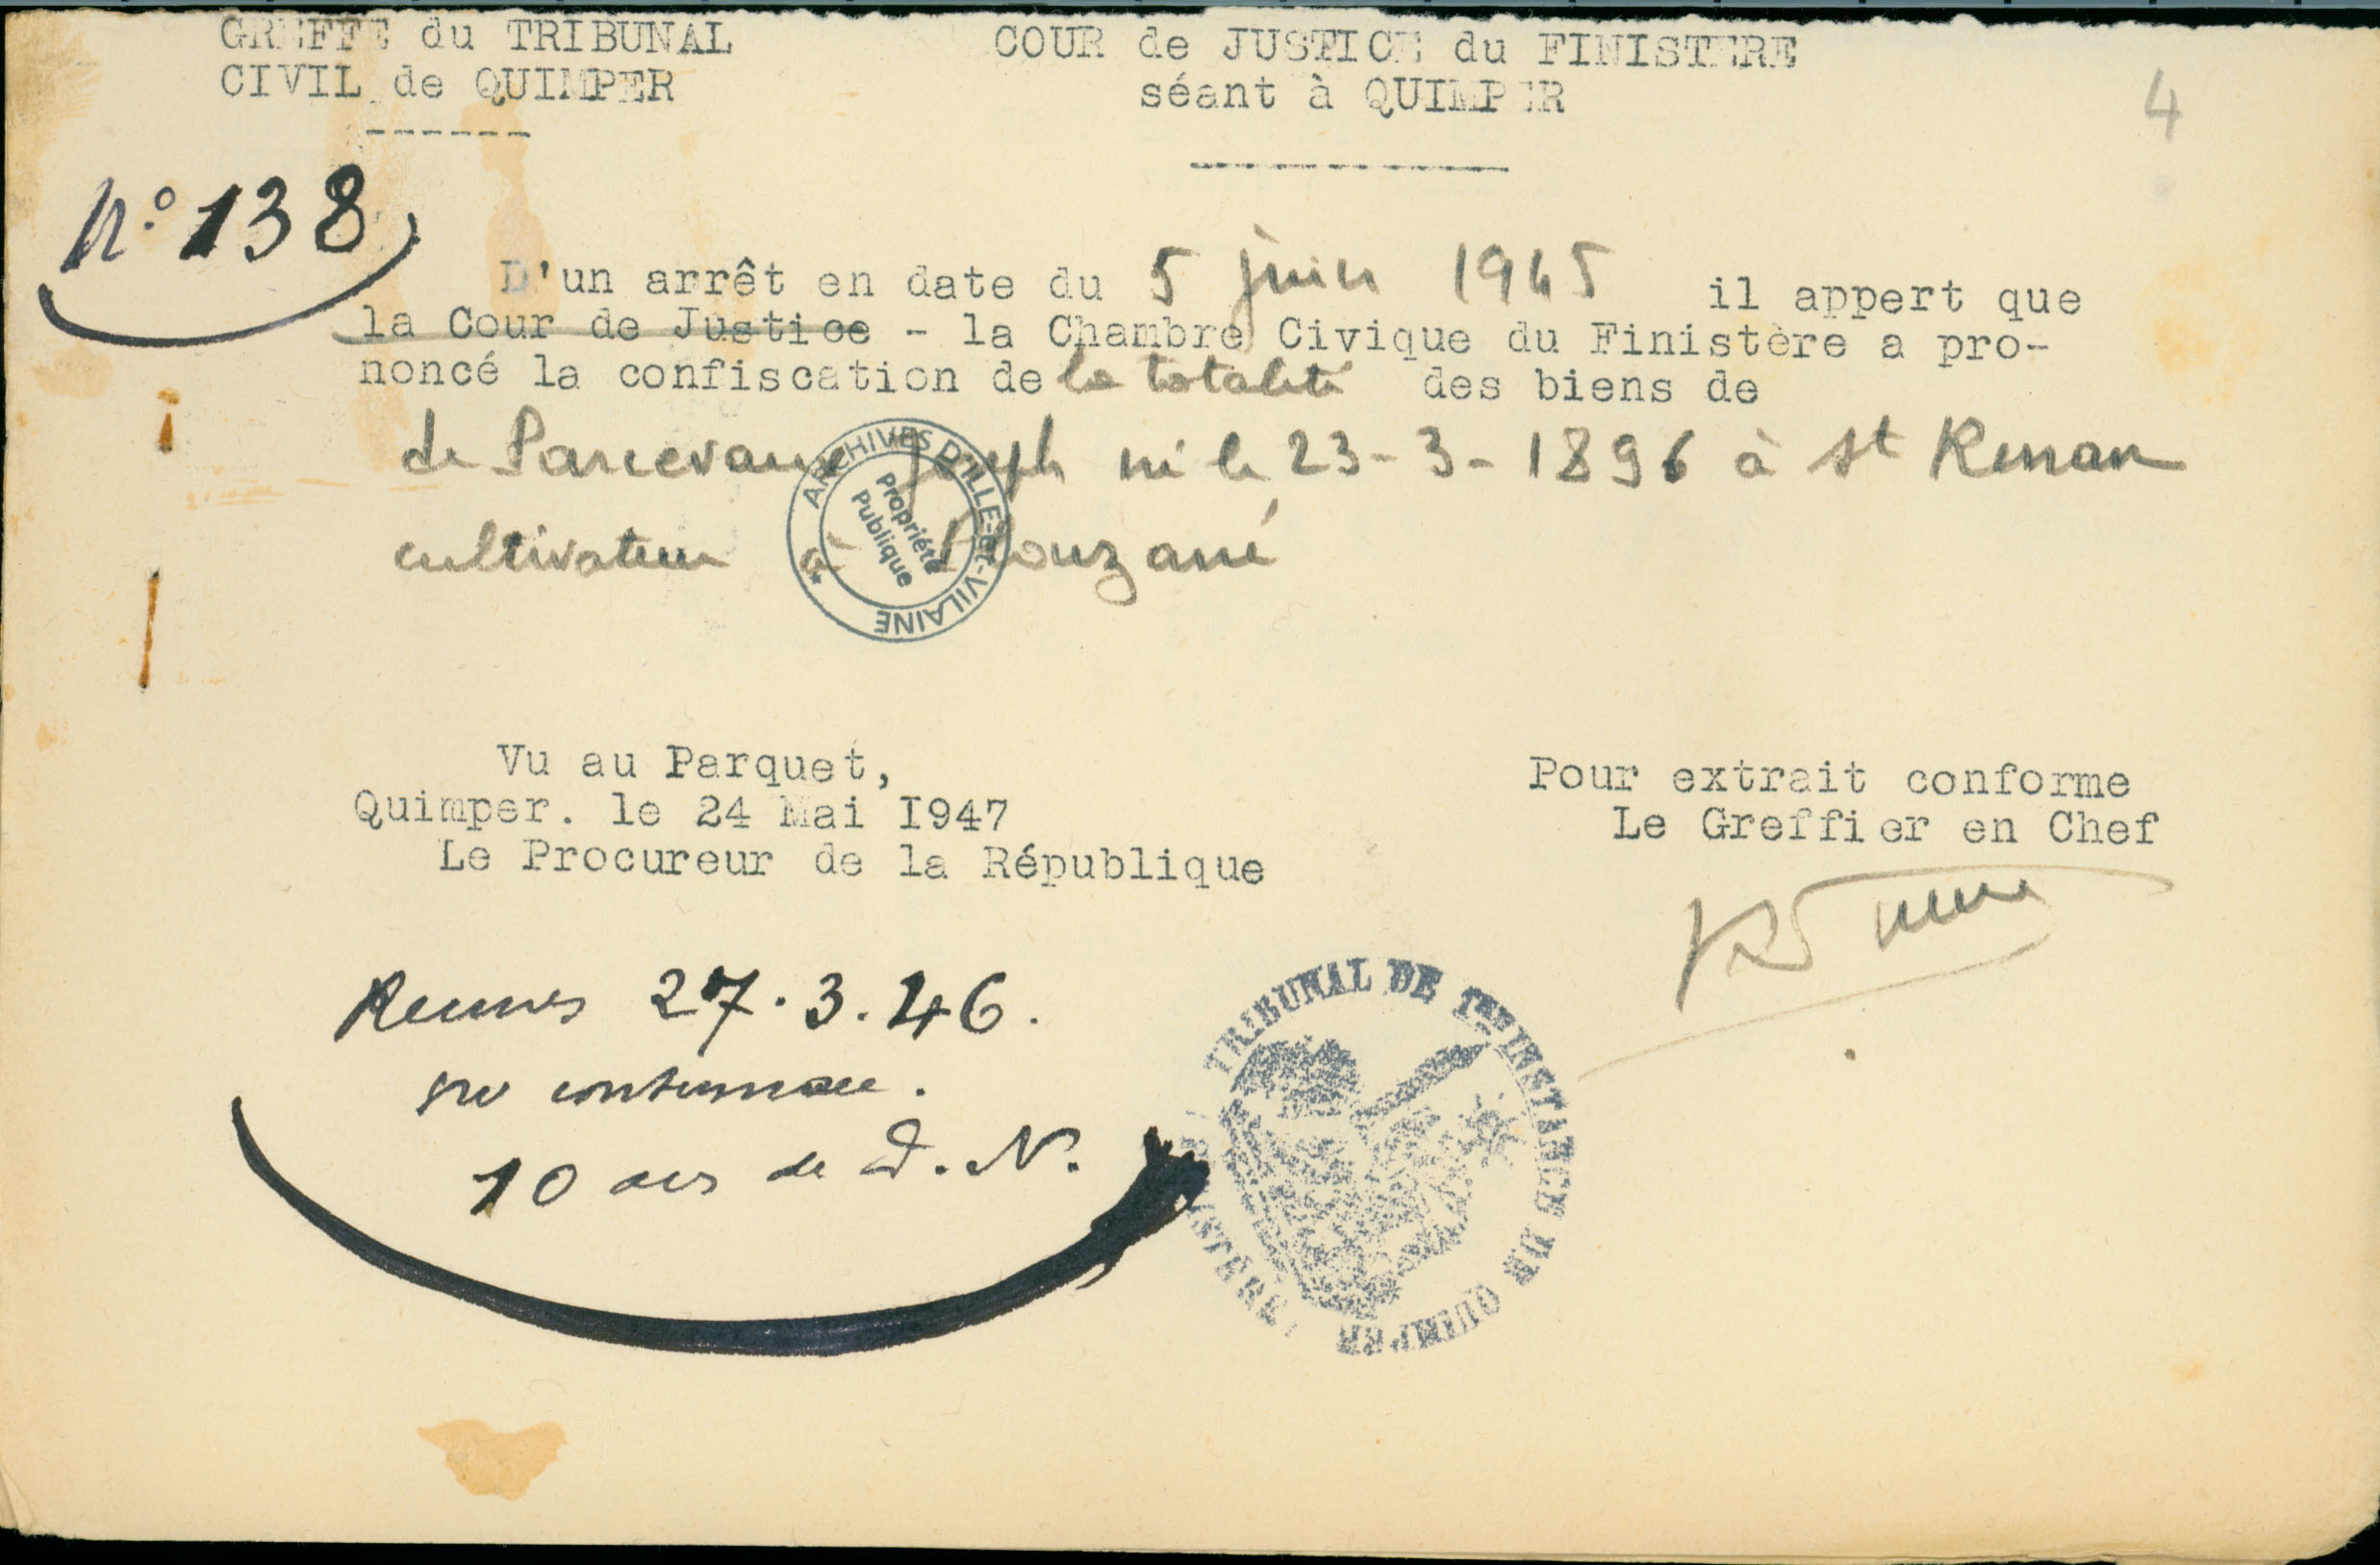 GREFFE du TRIBUNAL
CIVIL de QUIMPER
COUR de JUSTICE du FINISTERE
séant à QUIMPER
4
N° 138
D'un arrêt en date du 5 juin 1945 il appert que
la Cour de Justice - la Chambre Civique du Finistère a pro-
noncé la confiscation de la totalité des biens de
de Parcevaux Joseph né le 23-3-1896 à St Renan
cultivateur à Plouzané
ARCHIVES D'ILLE-et-VILAINE
Propriété
Publique
Vu au Parquet,
Quimper. le 24 Mai I947
Le Procureur de la République
Pour extrait conforme
Le Greffier en Chef
Rennes 27.3.46.
contumace.
10 ans de d.N.
TRIBUNAL DE 1ERE INSTANCE DE QUIMPER
FINISTERE